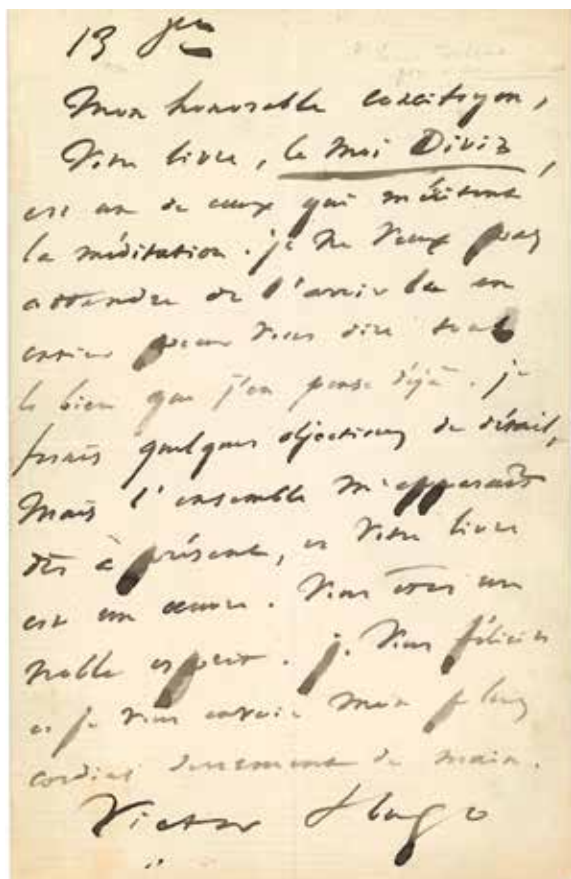 13 jer
Mon honorable concitoyen,
Votre livre, le Moi Divin,
est un de ceux qui méritent
la méditation. je ne veux pas
attendre de l'avoir lu en
entier pour vous dire tout
le bien que j'en pense déjà. je
ferais quelques objections de détail,
mais l'ensemble m'apparaît
dès à présent, et votre livre
est un œuvre. Vous êtes un
noble esprit. je vous félicite
et je vous envoie mon plus
cordial serrement de main.
Victor Hugo